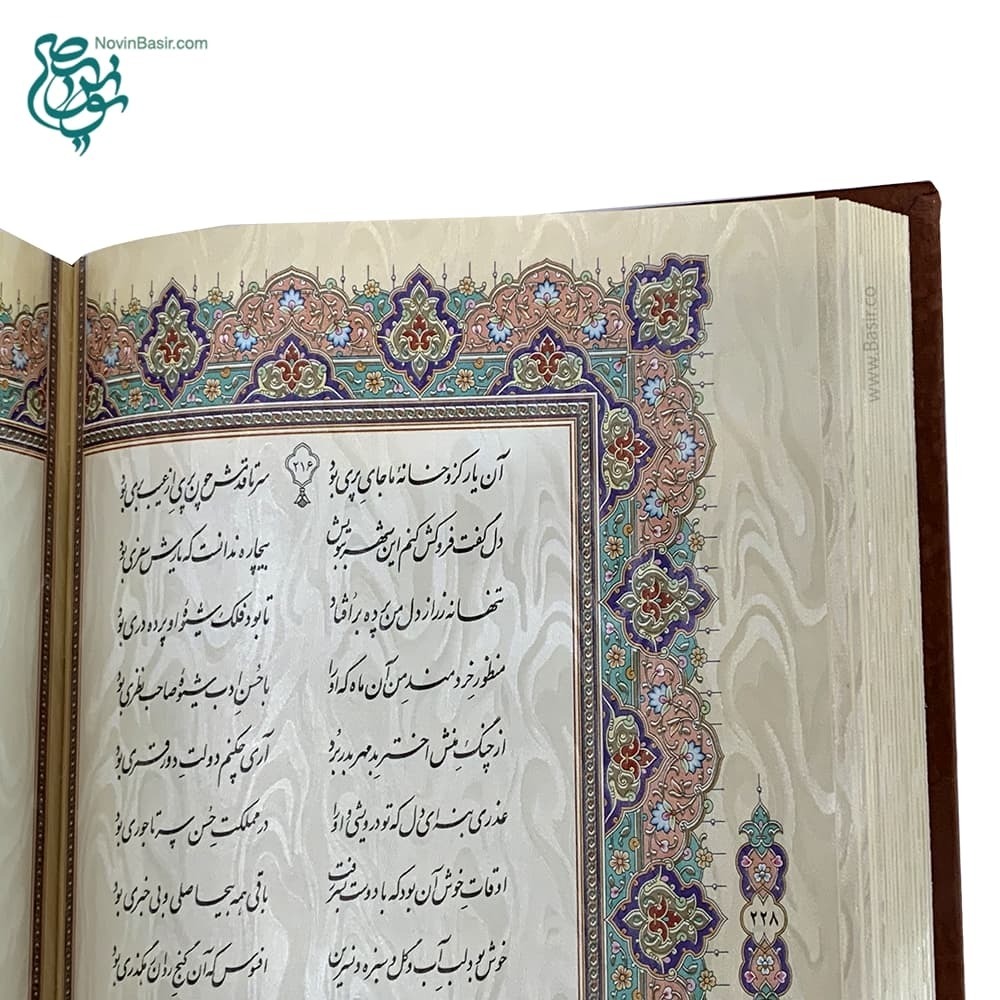 NovinBasir.com
نوین بصیر
www.Basir.co
۲۱۶
آن یار کزو خانهٔ ما جایِ پری بود سر تا قدمش چون پری از عیب بری بود
دل گفت فروکش کنم این شهر به بویش بیچاره ندانست که یارش سفری بود
تنها نه ز رازِ دلِ من پرده برافتاد تا بود فلک شیوهٔ او پرده دری بود
منظورِ خردمندِ من آن ماه که او را با حُسنِ ادب شیوهٔ صاحب نظری بود
از چنگِ منش اخترِ بدمهر بدر برد آری چکنم دولتِ دورِ قمری بود
عذری بنه ای دل که تو درویشی و او را در مملکتِ حُسن سرِ تاجوری بود
اوقاتِ خوش آن بود که با دوست بسر رفت باقی همه بیحاصلی و بی خبری بود
خوش بود لبِ آب و گل و سبزه و نسرین افسوس که آن گنجِ روان رهگذری بود
۲۲۸